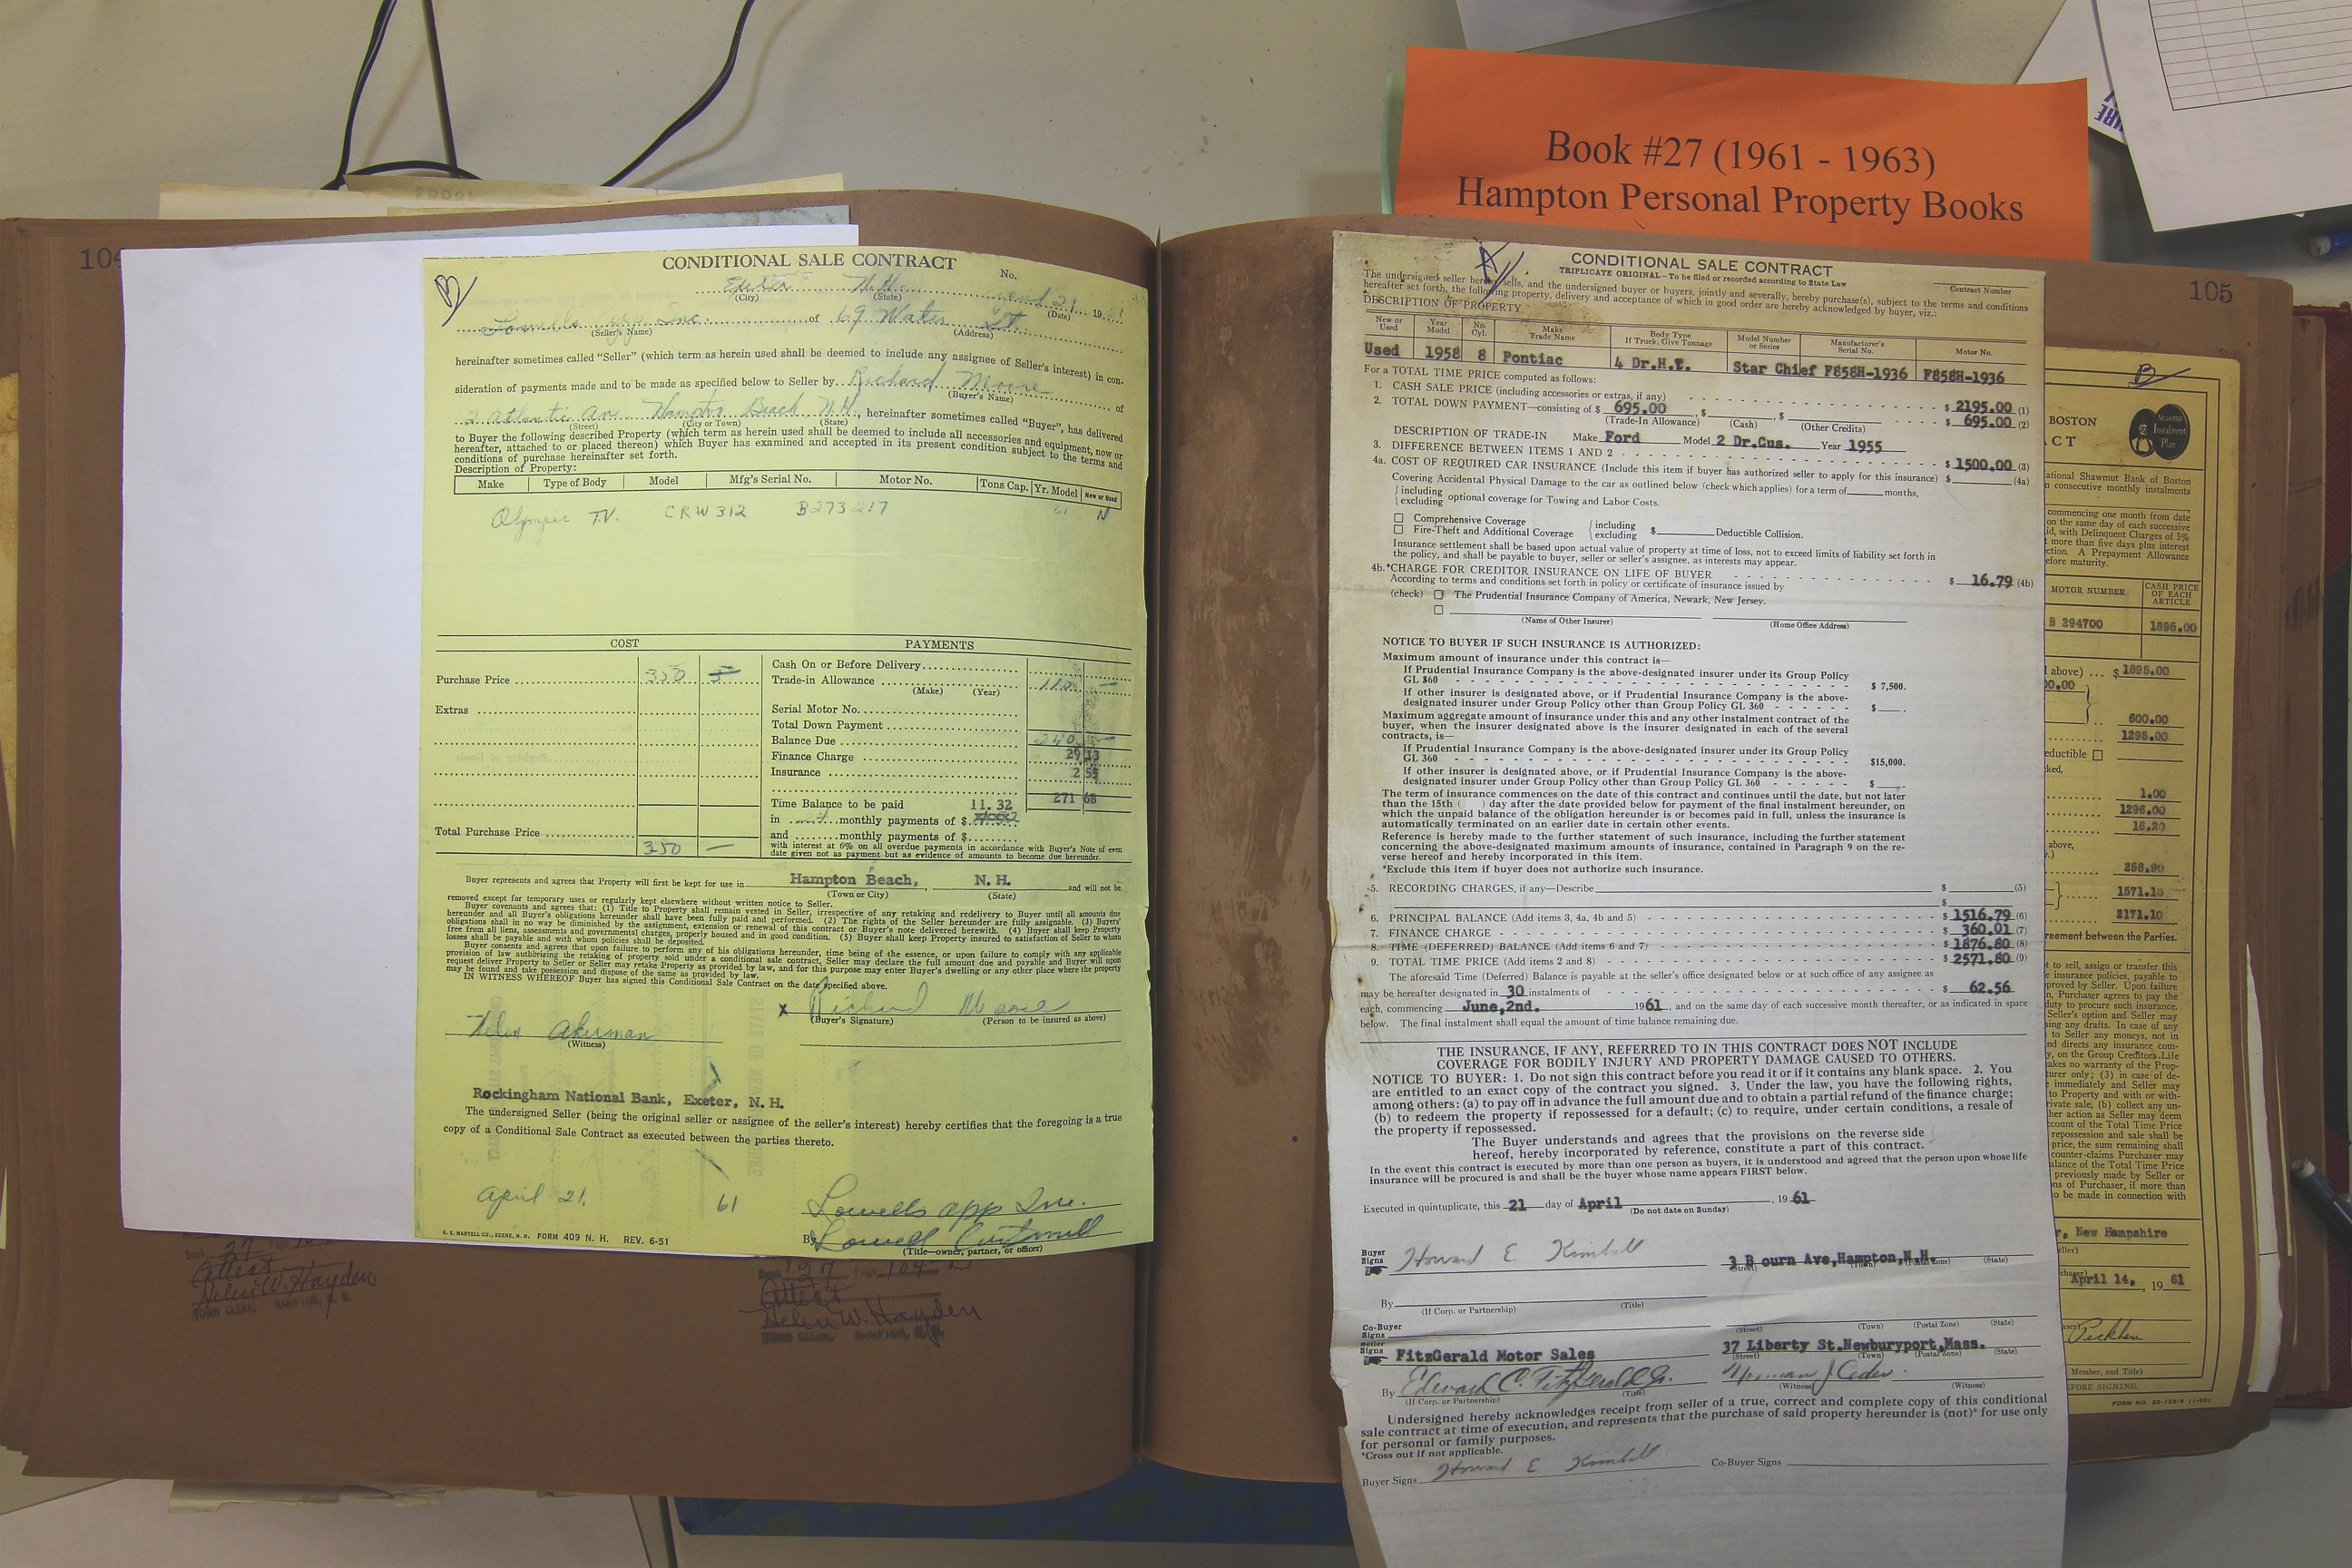 Book #27 (1961 - 1963)
Hampton Personal Property Books
104
B
CONDITIONAL SALE CONTRACT
No.
Exeter N.H. April 21 1961
(City) (State) (Date)
Lowells App Inc. of 69 Water St.
(Seller's Name) (Address)
hereinafter sometimes called "Seller" (which term as herein used shall be deemed to include any assignee of Seller's interest) in con-
sideration of payments made and to be made as specified below to Seller by Richard Moore of
(Buyer's Name)
2 Atlantic Ave. Hampton Beach N.H., hereinafter sometimes called "Buyer", has delivered
(Street) (City or Town) (State)
to Buyer the following described Property (which term as herein used shall be deemed to include all accessories and equipment, now or
hereafter, attached to or placed thereon) which Buyer has examined and accepted in its present condition subject to the terms and
conditions of purchase hereinafter set forth.
Description of Property:
Make Type of Body Model Mfg's Serial No. Motor No. Tons Cap. Yr. Model New or Used
Olympic T.V. CRW 312 B273217 61 N
COST PAYMENTS
Cash On or Before Delivery
Purchase Price 350 Trade-in Allowance 110 —
(Make) (Year)
Extras Serial Motor No.
Total Down Payment
Balance Due 240 —
Finance Charge 29 13
Insurance 2 55
Time Balance to be paid 11.32 271 68
in monthly payments of $
and monthly payments of $
Total Purchase Price 350 —
with interest at 6% on all overdue payments in accordance with Buyer's Note of even
date given not as payment but as evidence of amounts to become due hereunder.
Buyer represents and agrees that Property will first be kept for use in Hampton Beach, N. H. and will not be
(Town or City) (State)
removed except for temporary uses or regularly kept elsewhere without written notice to Seller.
Buyer covenants and agrees that: (1) Title to Property shall remain vested in Seller, irrespective of any retaking and redelivery to Buyer until all amounts due
hereunder and all Buyer's obligations hereunder shall have been fully paid and performed. (2) The rights of the Seller hereunder are fully assignable. (3) Buyers'
obligations shall in no way be diminished by the assignment, extension or renewal of this contract or Buyer's note delivered herewith. (4) Buyer shall keep Property
free from all liens, assessments and governmental charges, properly housed and in good condition. (5) Buyer shall keep Property insured to satisfaction of Seller to whom
losses shall be payable and with whom policies shall be deposited.
Buyer consents and agrees that upon failure to perform any of his obligations hereunder, time being of the essence, or upon failure to comply with any applicable
provision of law authorizing the retaking of property sold under a conditional sale contract, Seller may declare the full amount due and payable and Buyer will upon
request deliver Property to Seller or Seller may retake Property as provided by law, and for this purpose may enter Buyer's dwelling or any other place where the property
may be found and take possession and dispose of the same as provided by law.
IN WITNESS WHEREOF Buyer has signed this Conditional Sale Contract on the date specified above.
x Richard Moore
(Buyer's Signature) (Person to be insured as above)
Helen Akerman
(Witness)
Rockingham National Bank, Exeter, N. H.
The undersigned Seller (being the original seller or assignee of the seller's interest) hereby certifies that the foregoing is a true
copy of a Conditional Sale Contract as executed between the parties thereto.
April 21, 61
Lowells app Inc.
By Lowell
(Title—owner, partner, or officer)
A. E. MARTELL CO., KEENE, N. H. FORM 409 N. H. REV. 6-51
Book 27
Attest
Helen W. Hayden
TOWN CLERK, HAMPTON, N. H.
Book 27 Page 104-
Attest
Helen W. Hayden
TOWN CLERK, HAMPTON, N. H.
105
CONDITIONAL SALE CONTRACT
TRIPLICATE ORIGINAL—To be filed or recorded according to State Law
Contract Number
The undersigned seller hereby sells, and the undersigned buyer or buyers, jointly and severally, hereby purchase(s), subject to the terms and conditions
hereafter set forth, the following property, delivery and acceptance of which in good order are hereby acknowledged by buyer, viz.:
DESCRIPTION OF PROPERTY
New or Used Year Model No. Cyl. Make Trade Name Body Type If Truck, Give Tonnage Model Number or Series Manufacturer's Serial No. Motor No.
Used 1958 8 Pontiac 4 Dr.H.T. Star Chief F858H-1936 F858H-1936
For a TOTAL TIME PRICE computed as follows:
1. CASH SALE PRICE (including accessories or extras, if any) $ 2195.00 (1)
2. TOTAL DOWN PAYMENT—consisting of $ 695.00, $ , $ $ 695.00 (2)
(Trade-in Allowance) (Cash) (Other Credits)
DESCRIPTION OF TRADE-IN Make Ford Model 2 Dr.Cus. Year 1955
3. DIFFERENCE BETWEEN ITEMS 1 AND 2 $ 1500.00 (3)
4a. COST OF REQUIRED CAR INSURANCE (Include this item if buyer has authorized seller to apply for this insurance) $ (4a)
Covering Accidental Physical Damage to the car as outlined below (check which applies) for a term of months,
{including excluding optional coverage for Towing and Labor Costs.
☐ Comprehensive Coverage
☐ Fire-Theft and Additional Coverage {including excluding $ Deductible Collision.
Insurance settlement shall be based upon actual value of property at time of loss, not to exceed limits of liability set forth in
the policy, and shall be payable to buyer, seller or seller's assignee, as interests may appear.
4b.*CHARGE FOR CREDITOR INSURANCE ON LIFE OF BUYER $ 16.79 (4b)
According to terms and conditions set forth in policy or certificate of insurance issued by
(check) ☐ The Prudential Insurance Company of America, Newark, New Jersey.
☐
(Name of Other Insurer) (Home Office Address)
NOTICE TO BUYER IF SUCH INSURANCE IS AUTHORIZED:
Maximum amount of insurance under this contract is—
If Prudential Insurance Company is the above-designated insurer under its Group Policy
GL 360 $ 7,500.
If other insurer is designated above, or if Prudential Insurance Company is the above-
designated insurer under Group Policy other than Group Policy GL 360 $
Maximum aggregate amount of insurance under this and any other instalment contract of the
buyer, when the insurer designated above is the insurer designated in each of the several
contracts, is—
If Prudential Insurance Company is the above-designated insurer under its Group Policy
GL 360 $15,000.
If other insurer is designated above, or if Prudential Insurance Company is the above-
designated insurer under Group Policy other than Group Policy GL 360 $
The term of insurance commences on the date of this contract and continues until the date, but not later
than the 15th ( ) day after the date provided below for payment of the final instalment hereunder, on
which the unpaid balance of the obligation hereunder is or becomes paid in full, unless the insurance is
automatically terminated on an earlier date in certain other events.
Reference is hereby made to the further statement of such insurance, including the further statement
concerning the above-designated maximum amounts of insurance, contained in Paragraph 9 on the re-
verse hereof and hereby incorporated in this item.
*Exclude this item if buyer does not authorize such insurance.
5. RECORDING CHARGES, if any—Describe $ (5)
$
6. PRINCIPAL BALANCE (Add items 3, 4a, 4b and 5) $ 1516.79 (6)
7. FINANCE CHARGE $ 360.01 (7)
8. TIME (DEFERRED) BALANCE (Add items 6 and 7) $ 1876.80 (8)
9. TOTAL TIME PRICE (Add items 2 and 8) $ 2571.80 (9)
The aforesaid Time (Deferred) Balance is payable at the seller's office designated below or at such office of any assignee as
may be hereafter designated in 30 instalments of $ 62.56
each, commencing June,2nd. 1961, and on the same day of each successive month thereafter, or as indicated in space
below. The final instalment shall equal the amount of time balance remaining due.
THE INSURANCE, IF ANY, REFERRED TO IN THIS CONTRACT DOES NOT INCLUDE
COVERAGE FOR BODILY INJURY AND PROPERTY DAMAGE CAUSED TO OTHERS.
NOTICE TO BUYER: 1. Do not sign this contract before you read it or if it contains any blank space. 2. You
are entitled to an exact copy of the contract you signed. 3. Under the law, you have the following rights,
among others: (a) to pay off in advance the full amount due and to obtain a partial refund of the finance charge;
(b) to redeem the property if repossessed for a default; (c) to require, under certain conditions, a resale of
the property if repossessed.
The Buyer understands and agrees that the provisions on the reverse side
hereof, hereby incorporated by reference, constitute a part of this contract.
In the event this contract is executed by more than one person as buyers, it is understood and agreed that the person upon whose life
insurance will be procured is and shall be the buyer whose name appears FIRST below.
Executed in quintuplicate, this 21 day of April, 1961
(Do not date on Sunday)
Buyer Signs Howard E Kimball 3 B ourn Ave,Hampton,N.H.
(Street) (Town) (Postal Zone) (State)
By
(If Corp. or Partnership) (Title)
Co-Buyer Signs
(Street) (Town) (Postal Zone) (State)
Seller Signs FitzGerald Motor Sales 37 Liberty St.Newburyport,Mass.
(Street) (Town) (Postal Zone) (State)
By Edward C. FitzGerald Jr. Norman J.
(If Corp. or Partnership) (Title) (Witness) (Witness)
Undersigned hereby acknowledges receipt from seller of a true, correct and complete copy of this conditional
sale contract at time of execution, and represents that the purchase of said property hereunder is (not)* for use only
for personal or family purposes.
*Cross out if not applicable.
Buyer Signs Howard E Kimball Co-Buyer Signs
B
BOSTON
ACT
Shawmut Instalment Plan
ational Shawmut Bank of Boston
n consecutive monthly instalments
commencing one month from date
on the same day of each successive
id, with Delinquent Charges of 5%
t more than five days plus interest
ction. A Prepayment Allowance
efore maturity.
MOTOR NUMBER CASH PRICE OF EACH ARTICLE
B 294700 1895.00
l above) $ 1895.00
00.00
600.00
1295.00
eductible ☐
ked,
1.00
1296.00
16.20
above,
258.90
1571.10
2171.10
reement between the Parties.
t to sell, assign or transfer this
e insurance policies, payable to
pproved by Seller. Upon failure
n, Purchaser agrees to pay the
duty to procure such insurance.
Seller's option and Seller may
sing any drafts. In case of any
to Seller any moneys, not in
nd directs any insurance com-
y, on the Group Creditors Life
akes no warranty of the Prop-
turer only; (3) in case of de-
e immediately and Seller may
to Property and with or with-
rivate sale, (b) collect any un-
her action as Seller may deem
ccount of the Total Time Price
repossession and sale shall be
price, the sum remaining shall
counter-claims Purchaser may
alance of the Total Time Price
previously made by Seller or
ns of Purchaser, if more than
o be made in connection with
r, New Hampshire
eller)
April 14, 1961
Peckham
Member, and Title)
EFORE SIGNING.